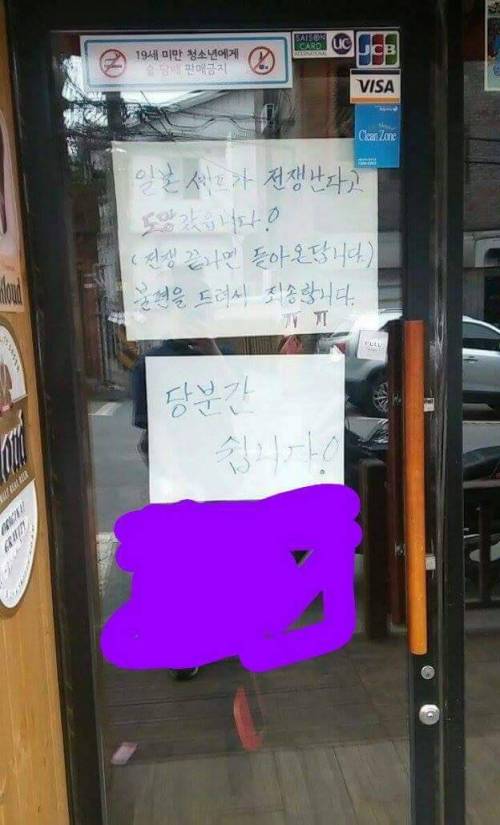 19세 미만 청소년에게
술 담배 판매금지
SAISON
CARD
INTERNATIONAL
UC
JCB
VISA
Clean Zone
일본 셰프가 전쟁난다고
도망갔읍니다!
(전쟁 끝나면 돌아온답니다.)
불편을 드려서 죄송합니다.
ㅠ ㅠ
당분간
쉽니다!
ORIGINAL
GRAVITY